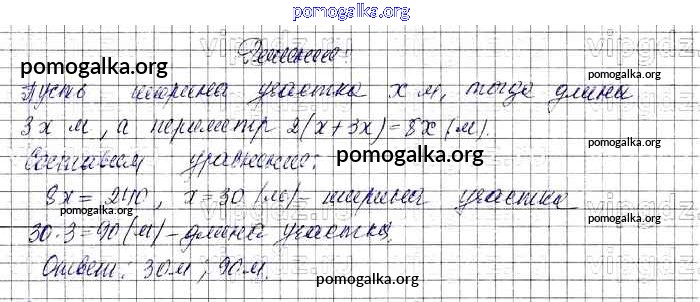 pomogalka.org
Решение:
pomogalka.org
pomogalka.org
Пусть ширина участка x м, тогда длина
pomogalka.org
3x м, а периметр 2(x+3x)=8x (м).
Составляем уравнение:
pomogalka.org
8x = 240, x=30 (м) – ширина участка
pomogalka.org
pomogalka.org
30·3=90 (м) – длина участка.
Ответ: 30м; 90м.
pomogalka.org